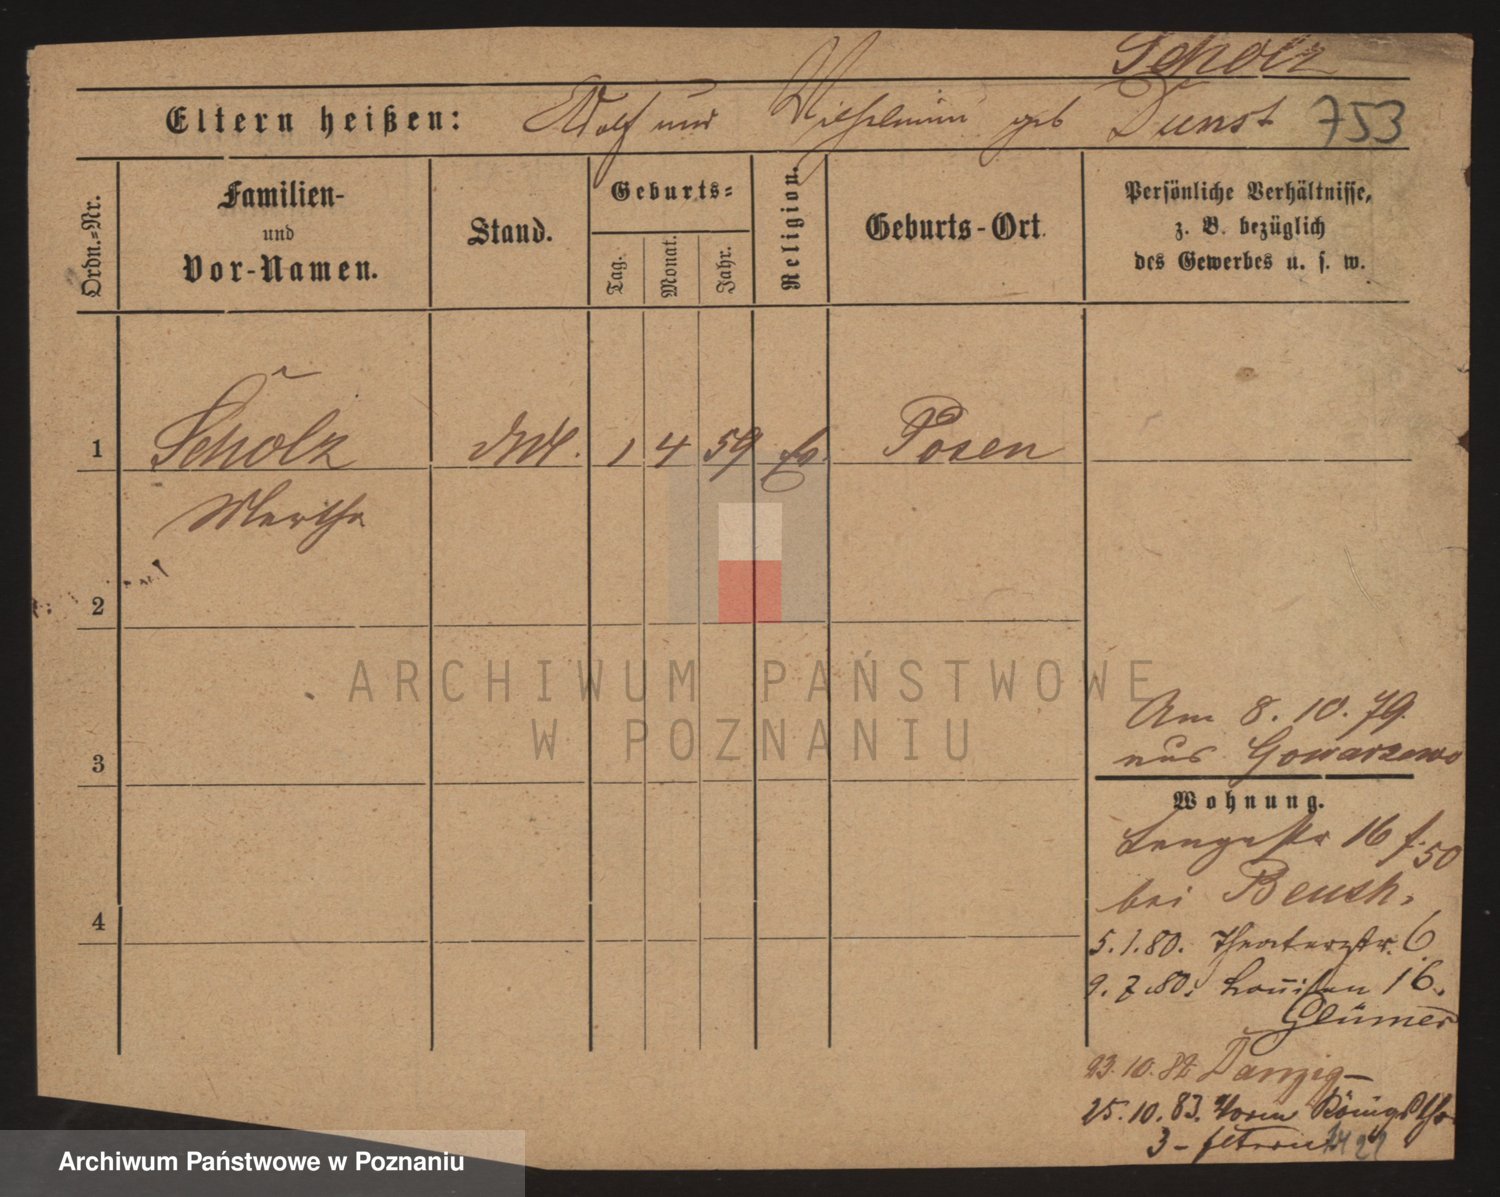 Scholz
Eltern heißen: Adolf und Wilhelmine geb Dienst 753
Ordn.=Nr.
Familien-
und
Vor-Namen.
Stand.
Geburts=
Tag.
Monat.
Jahr.
Religion.
Geburts-Ort.
Persönliche Verhältnisse,
z. B. bezüglich
des Gewerbes u. s. w.
1 Scholz 1 4 59 Posen
Martha
2
3
4
Am 8. 10. 79.
aus Gowarzewo
Wohnung.
Langestr 16
bei
5. 1. 80. Theaterstr. 6.
9. 7. 80. Louisen 16.
Glümer
23. 10. 82 Danzig
25. 10. 83. Vorm Königsthor
3 - Eltern
ARCHIWUM PAŃSTWOWE
W POZNANIU
Archiwum Państwowe w Poznaniu